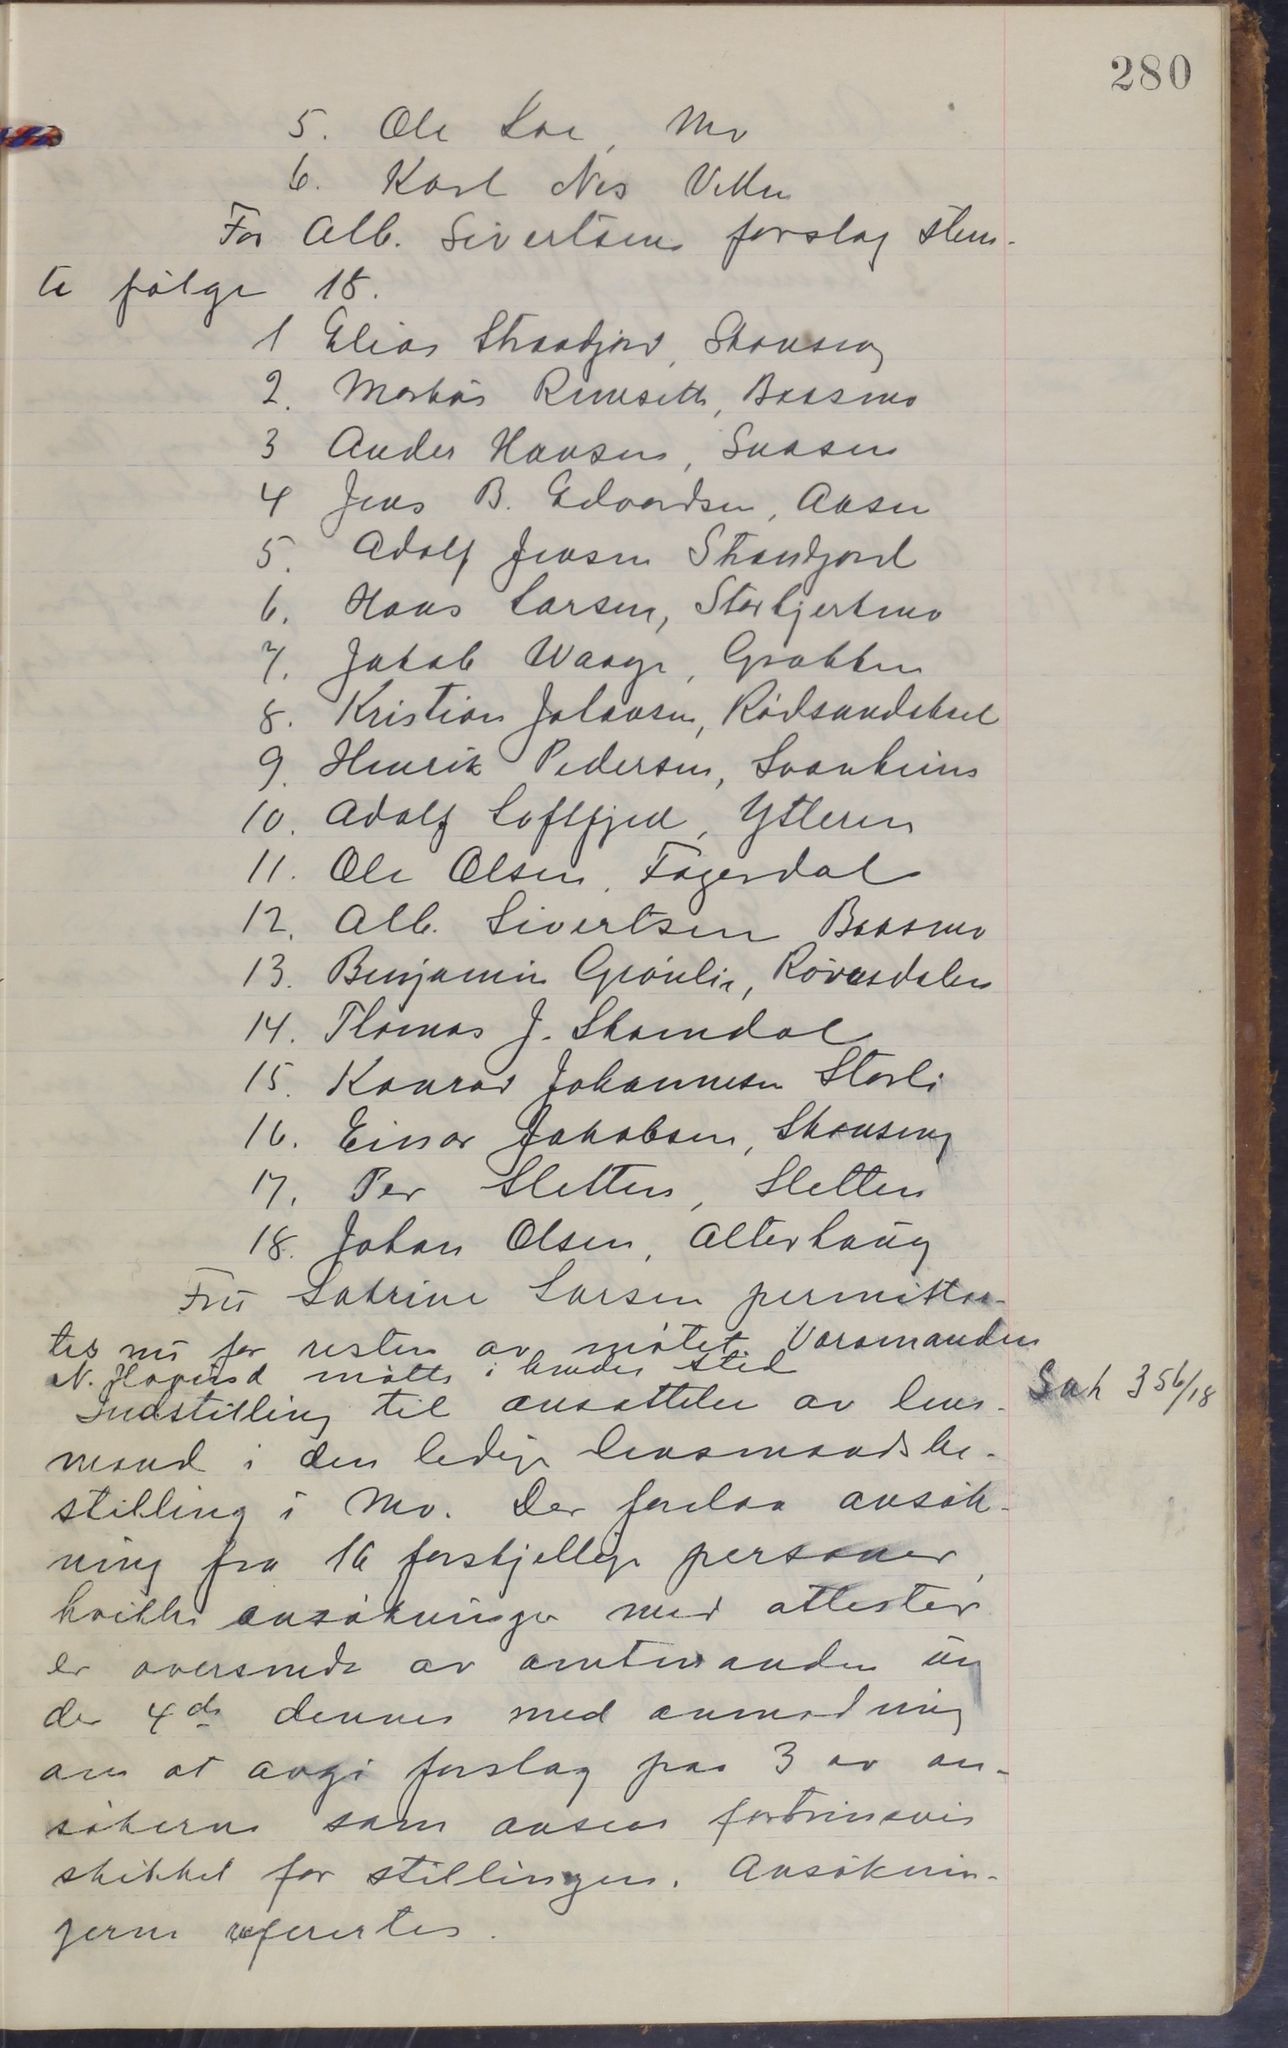 280
5. Ole Loe, Mo
6. Karl Nes Viken
For Alb. Sivertsens forslag stem-
te følge 18.
1 Elias Strandjord, Skonseng
2. Markus Remseth, Baasmo
3 Ander Hansen, Snaasen
4 Jens B. Edvardsen, Aasen
5. Adolf Jensen Strandjord
6. Hans Larsen, Storbjerkmo
7. Jakob Waage, Grubben
8. Kristian Johansen, Rødsandaksel
9. Henrik Pedersen, Svanheim
10. Adolf Loftfjed, Ytteren
11. Ole Olsen, Fagerdal
12. Alb. Sivertsen Baasmo
13. Benjamin Grønlie, Røvasdalen
14. Thomas J. Skamdal
15. Konrad Johannesen Storli
16. Einar Jakobsen, Skonseng
17. Per Sletten, Sletten
18. Johan Olsen, Alterhaug
Fru Sakrine Larsen permitter-
tes nu for resten av møtet. Varamanden
N. møtte i hendes sted
Indstilling til ansættelse av lens-
Sak 356/18
mand i den ledige lensmandsbe-
stilling i Mo. Der forelaa ansøk-
ning fra 16 forskjellige personer,
hvilke ansøkninger med attester
er oversendt av amtmanden un
der 4de dennes med anmodning
om at avgi forslag paa 3 av an-
søkerne som ansees fortrinsvis
skikket for stillingen. Ansøknin-
gerne refertes.